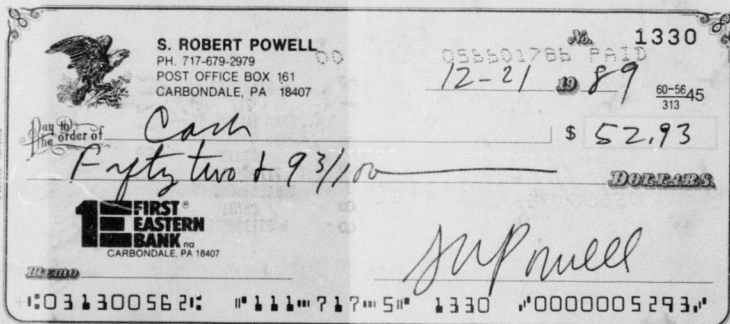 S. ROBERT POWELL
PH. 717-679-2979
POST OFFICE BOX 161
CARBONDALE, PA 18407
No. 1330
056601786 PAID
12-21 19 89
60-56 45
313
Pay to the order of Cash $ 52.93
Fifty two & 93/100 DOLLARS
1E FIRST EASTERN BANK na
CARBONDALE, PA 18407
Memo
S R Powell
⑆031300562⑆ ⑈111⑉717⑉5⑈ 1330 ⑈0000005293⑈